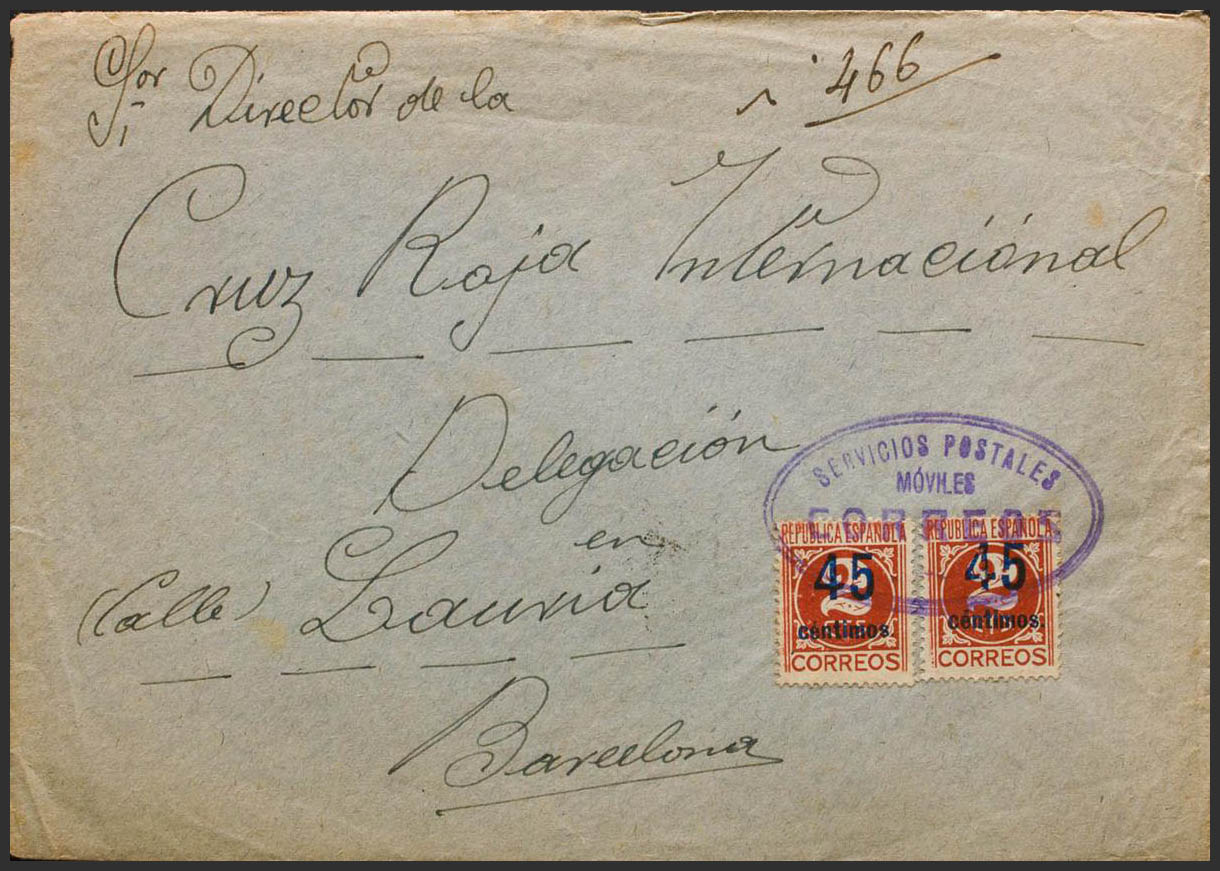 Sor Director de la
466
Cruz Roja Internacional
Delegación
en
(Calle) Lauria
Barcelona
SERVICIOS POSTALES
MÓVILES
CORREOS
REPUBLICA ESPAÑOLA
45
2
céntimos.
CORREOS
REPUBLICA ESPAÑOLA
45
2
céntimos.
CORREOS